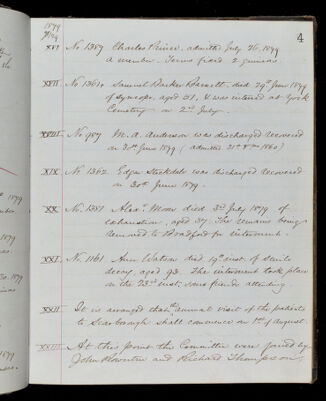 4
1879
July
XVI No. 1389 Charles Prince, admitted July 26, 1879
a member. Terms fixed 2 guineas.
XVII No. 1364 Samuel Barker Barnett, died 29th June 1879
of Syncope, aged 51, & was interred at York
Cemetery on 2nd July.
XVIII No. 907 M. A. Anderson was discharged recovered
on 30th June 1879 (admitted 21st 8mo 1860)
XIX No. 1362 Edgar Stockdale was discharged recovered
on 30th June 1879.
XX No. 1381 Alexr. Moon died 3rd July 1879 of
exhaustion, aged 37. The remains being
removed to Bradford for interment.
XXI No. 1161 Ann Watson died 19th inst. of senile
decay, aged 93. The interment took place
on the 23rd inst., some friends attending.
XXII It is arranged that the annual visit of the patients
to Scarborough shall commence on 1st of August.
XXIII At this point the Committee were joined by
John Rowntree and Richard Thompson.